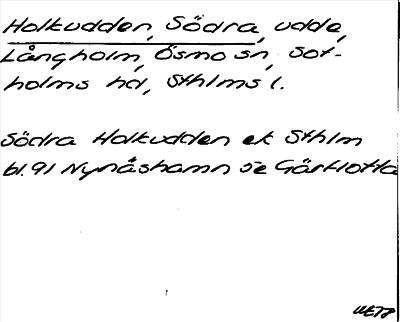 Holkudden, Södra, udde,
Långholm, Ösmo sn, Sot-
holms hd, Sthlms l.
Södra Holkudden ek Sthlm
bl. 91 Nynäshamn se Gårflotta